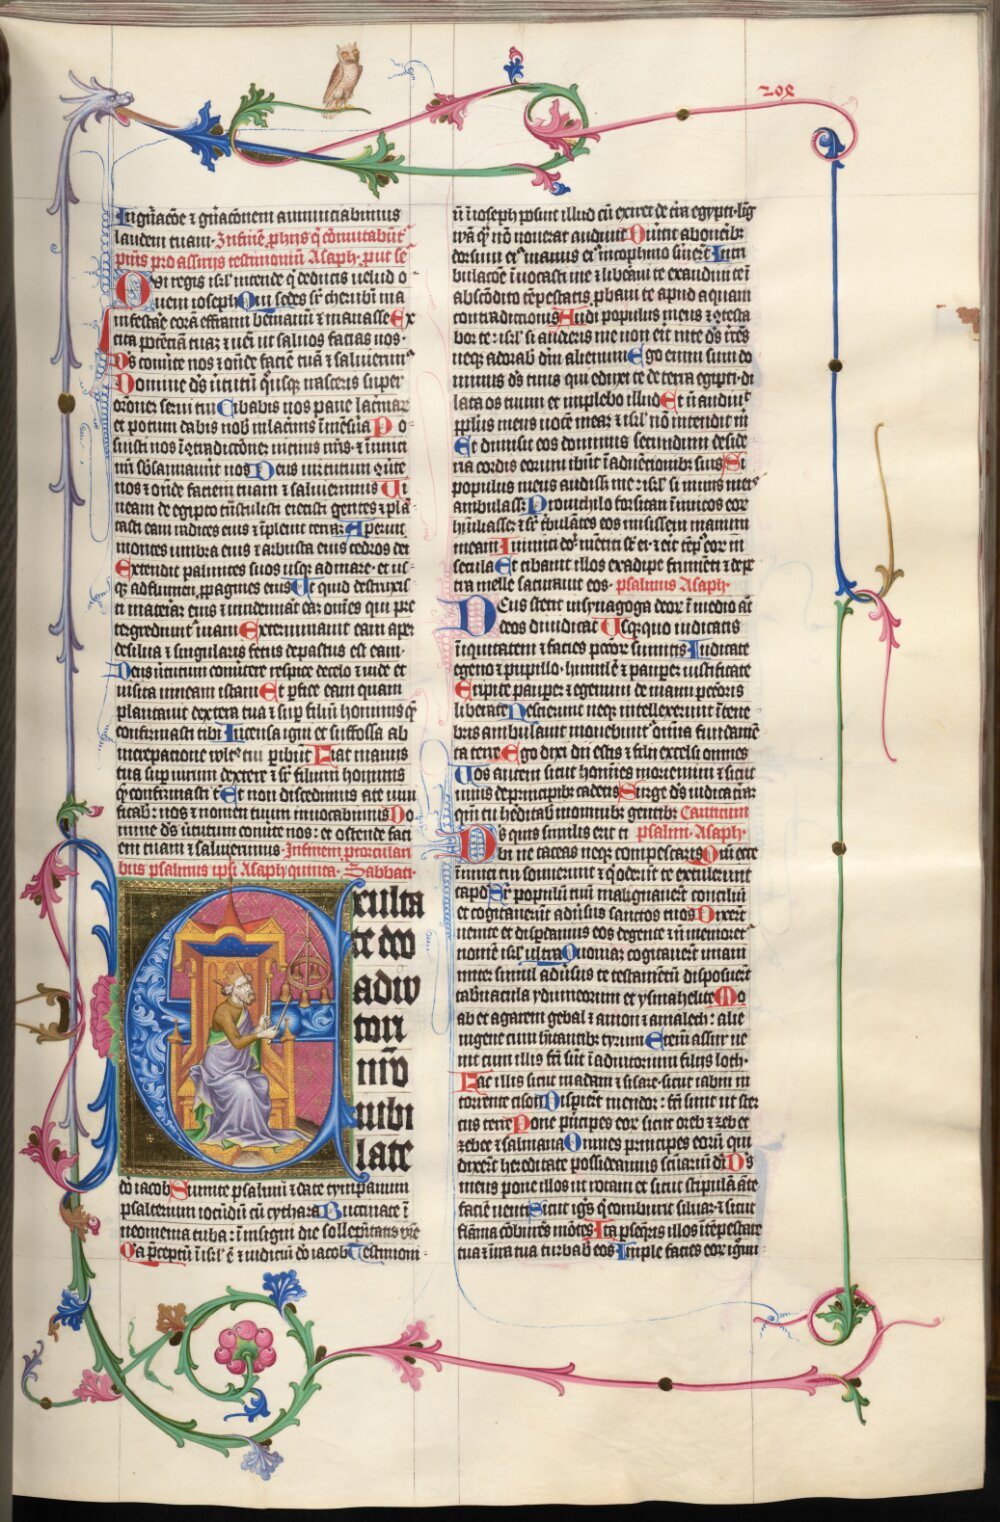 In gnacõe ⁊ gnacõnem annunciabimus
laudem tuam· In finẽ p hijs q̃ cõmutabũt
puis pro assirijs testimoniũ Asaph· put se
Qvi regis isrl intende q̃ deducis uelud o
uem ioseph Qui sedes sr̃ cherubĩ ma
nifestare corã effraim beniamĩ ⁊ manasse Ex
cita potẽciã tuã ⁊ ueni ut saluos facias nos·
Ds conũte nos ⁊ oñde faciẽ tuã ⁊ saluierimꝰ
Domine ds ũtutũ quisq irasceris super
oronez serui tui Cibabis nos pane lacrimaꝝ
et potum dabis nob in lacrimis ĩ mẽsura Po
suisti nos ĩ cõtradictõnez uicinis nris· ⁊ inimici
nri sbsannauerũt nos Deus uirtutum cõũte
nos ⁊ oñde faciem tuam ⁊ saluierimus Vi
neam de egipto trãstulisti eiecisti gentes ⁊ plã
tasti eam radices eius ⁊ ĩpleuit terrã· Aperuit
montes umbra eius ⁊ arbusta eius cedros dei
Extendit palmites suos usqꝫ ad mare· et us
qꝫ ad flumen ppagines eius Ut quid destruxis
ti maceriã eius ⁊ uindemiant eã om̃es qui pre
tergrediunt uiam Exterminauit eam aper
de silua ⁊ singularis ferus depastus est eam·
Deus ũtutum conũtere respice de celo ⁊ uide et
uisita uineam istam Et pfice eam quam
plantauit dextera tua ⁊ sup filiũ hominis q̃
confirmasti tibi Incensa igni et suffossa ab
increpacione uultꝰ tui peribũt Fiat manus
tua sup uirum dextere ⁊ sr̃ filium hominis
q̃ confirmasti t Et non discedimus a te uiui
ficab· nos ⁊ nomen tuum inuocabimus Do
mine ds ũtutum conũte nos: et ostende faci
em tuam ⁊ salui erimus· In finem p torculari
bus psalmus ipsi Asaph quinta· Sabbati·
Exulta
te deo
adiu
tori
nr̃o
iubi
late
dõ iacob Sumite psalmũ ⁊ date tympanum
psalterium iocũdũ cũ cythara Buccinate ĩ
neomenia tuba: ĩ insigni die sollẽpnitatis ure
Qa p̃ceptũ ĩ isrl ẽ ⁊ iudiciũ dõ iacob Testimoni
ũ ĩ ioseph posuit illud cũ exiret de tr̃a egypti· lig
wã q̃ nõ nouerat audiuit Diuertit ab onerib
dorsum eiꝰ manus eiꝰ in cophino suierũt In tri
bulacõe ĩuocasti me ⁊ liberaui te exaudiui te ĩ
abscõdito tẽpestatis· pbaui te apud aquam
contradictionis Audi populus meus ⁊ cõtesta
bor te: isrl si audieris me non erit in te ds recẽs
neqꝫ adorab dm alienum Ego enim sum do
minus ds tuus qui eduxi te de terra egipti· di
lata os tuum et implebo illud Et ñ audiuit
pplus meus uocẽ meã· ⁊ isrl nõ intendit m
Et dimisit eos dominus secundum deside
ria cordis eorum ibũt ĩ adĩuencionibꝫ suis Si
populus meus audiss· me: isrl si in uiis meis
ambulass: Pro nichilo forsitan inimicos eoꝝ
hũiliasse: ⁊ sr̃ tribulãtes eos misissem manum
meam Inimici do᷑ mẽtiti st ei· ⁊ eit tẽpꝰ eoꝝ in
secula Et cibauit illos ex adipe frumẽti ⁊ de pe
tra melle saturauit eos· psalmus Asaph·
Deus stetit in synagoga deoꝝ ĩ medio aũ
deos diiudicat Usqꝫquo iudicatis
ĩiquitatem ⁊ facies pctoꝝ sumitis· Iudicate
egeno ⁊ pupillo· humilẽ ⁊ pauꝑez iustificate
Eripite pauperez ⁊ egenum de manu pctoris
liberate Nescierunt neqꝫ intellexerunt ĩ tene
bris ambulant mouebunt᷑ omnia fundamẽ
ta terre Ego dixi dii estis ⁊ filii excelsi omnes
Uos autem sicut homines moriemini ⁊ sicut
unus de principibꝫ cadetis Surge ds iudica terã·
qm tu hẽditab in omnibꝫ gentibꝫ Canticum
Ds quis similis erit ti psalm· Asaph·
bi ne taceas neqꝫ compescaris Qm ecce
ĩimici tui sonuerunt ⁊ q̃ oderũt te extulerunt
capd Sr̃ populũ tuũ malignauerũt consiliũ
et cogitauerũt adũsus sanctos tuos Dixerũt
uenite et disperdamus eos de gente ⁊ ñ memoret᷑
nomẽ isrl ultra Quoniaz cogitauerũt unani
miter simul adũsus te testamentũ disposuerũt
tab̃nacula ydumeorum et ysmahelite Mo
ab et agareni gebal ⁊ amon ⁊ amalech: alie
nigene cum hĩtantibꝫ tyrum Etenĩ assur ue
nit cum illis fcĩ sũt ĩ adiutorium filijs loth·
Fac illis sicut madiam ⁊ sisare· sicut iabin in
torrente cison Disperiẽt in endor: fcĩ sunt ut ster
cus terre Pone p̃ncipes eoꝝ sicut oreb ⁊ zeb et
zebee ⁊ salmana Omnes principes eorũ qui
dixerũt hereditate possideamus scuariũ di Ds
meus pone illos ut rotam et sicut stipulã ãte
faciẽ uenti Sicut ignis q̃ comburit siluã· ⁊ sicut
flãma cõburẽs mõtes Ita pseq̃ris illos ĩ tẽpestate
tua ⁊ ĩ ira tua turbab eos Imple facies eoꝝ ignõi